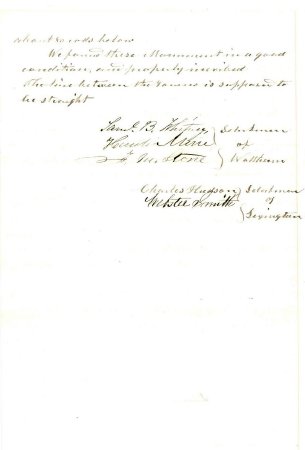 about rods below
We found these Monument in a good
condition, and properly inscribed
The line between the towns is supposed to
be straight
Saml. B. Whitney Selectmen
Horatio Moore of
F. M. Stone Waltham
Charles Hudson Selectmen
Webster Smith of
Lexington